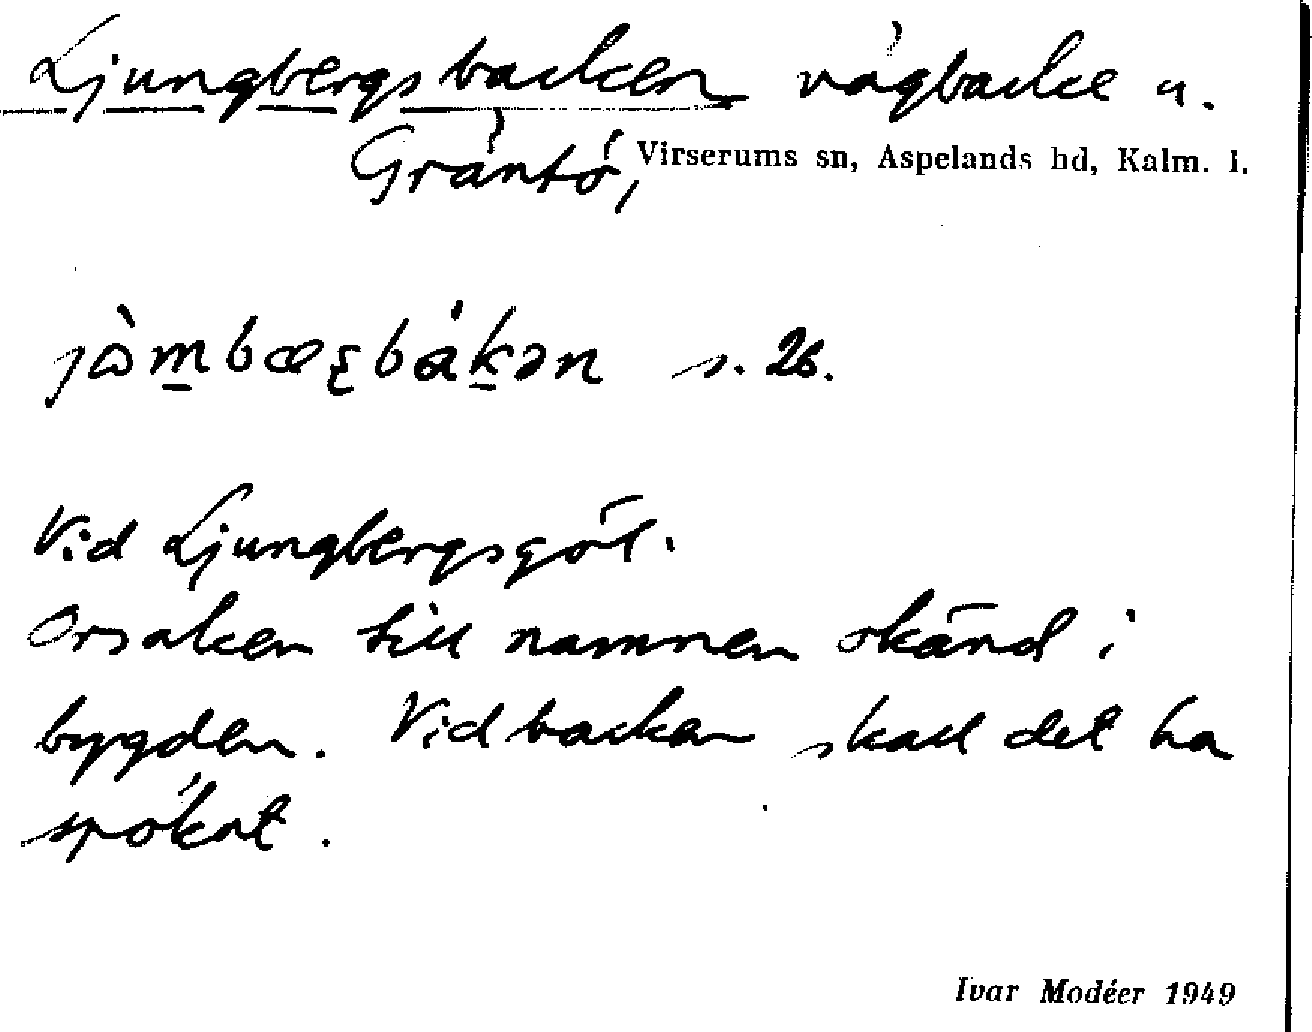 Ljungbergsbacken vägbacke u.
Gräntö, Virserums sn, Aspelands hd, Kalm. l.
s. 26.
Vid Ljungbergsgöl.
Orsaken till namnen okänd i
bygden. Vid backen skall det ha
spökat.
Ivar Modéer 1949